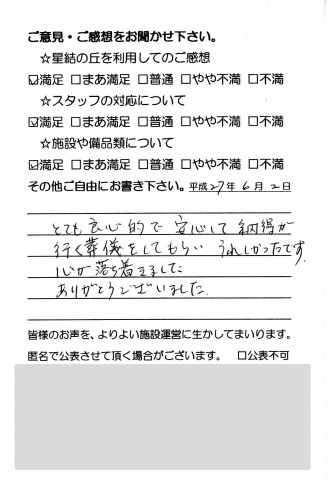 ご意見・ご感想をお聞かせ下さい。
☆星結の丘を利用してのご感想
☑満足 □まあ満足 □普通 □やや不満 □不満
☆スタッフの対応について
☑満足 □まあ満足 □普通 □やや不満 □不満
☆施設や備品類について
☑満足 □まあ満足 □普通 □やや不満 □不満
その他ご自由にお書き下さい。平成27年6月2日
とても良心的で 安心して 納得が
行く葬儀をしてもらい うれしかったです。
心が落ち着きました
ありがとうございました。
皆様のお声を、よりよい施設運営に生かしてまいります。
匿名で公表させて頂く場合がございます。 □公表不可